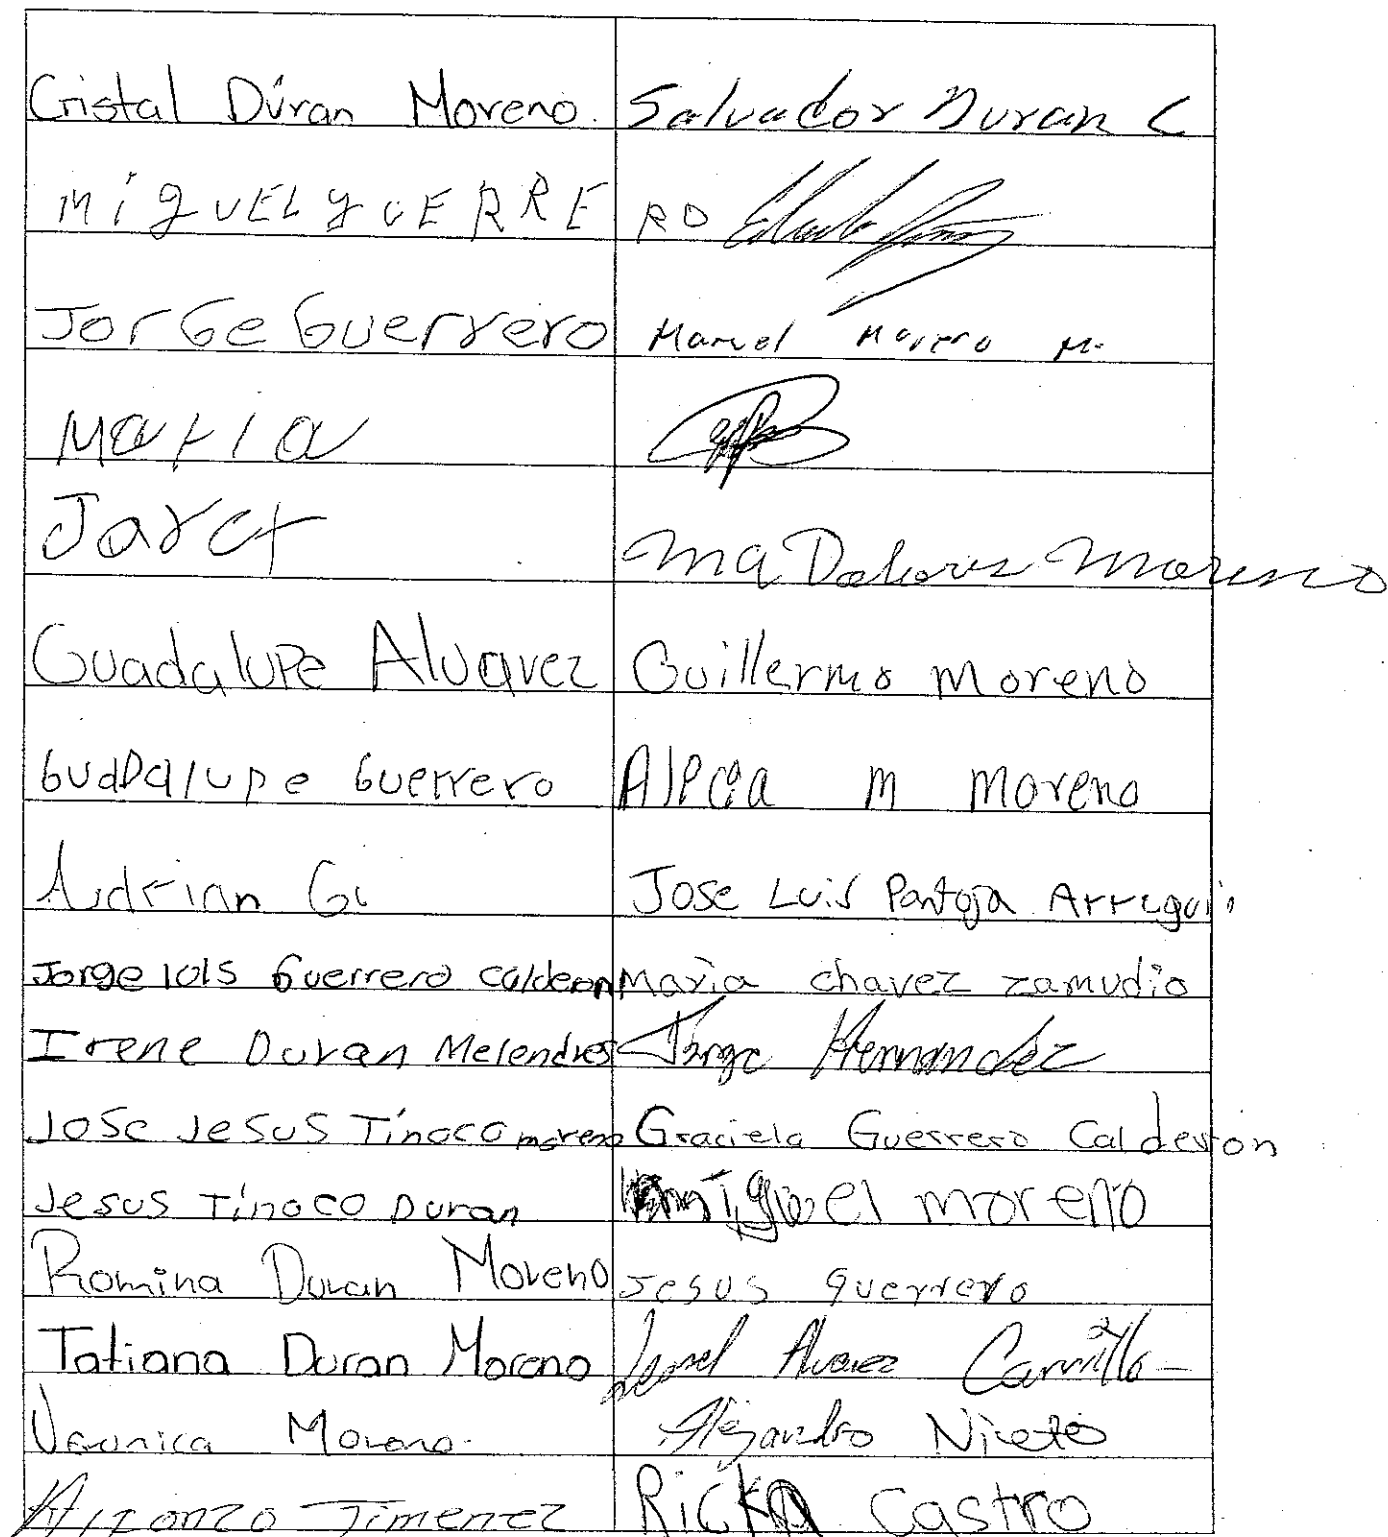 Cristal Dúran Moreno. Salvador Duran C
MiguEL guERRE RO
JorGe Guerrero Manuel Moreno M.
Maria
Jaret Ma Dolores Moreno
Guadalupe Alvarez Guillermo Moreno
GuaDalupe Guerrero M Moreno
Adrian G Jose Luis Pantoja Arregui
Jorge luis Guerrero Calderon Maria chavez zamudio
Irene Duran Melendres Jorge Hernandez
Jose Jesus Tinoco moreno Graciela Guerrero Calderon
Jesus Tínoco Duran miguel moreno
Romina Duran Moreno Jesus guerrero
Tatiana Duran Moreno Alvarez Carrillo
Veronica Moreno. Alejandro Nieto
Alfonzo Jimenez Castro